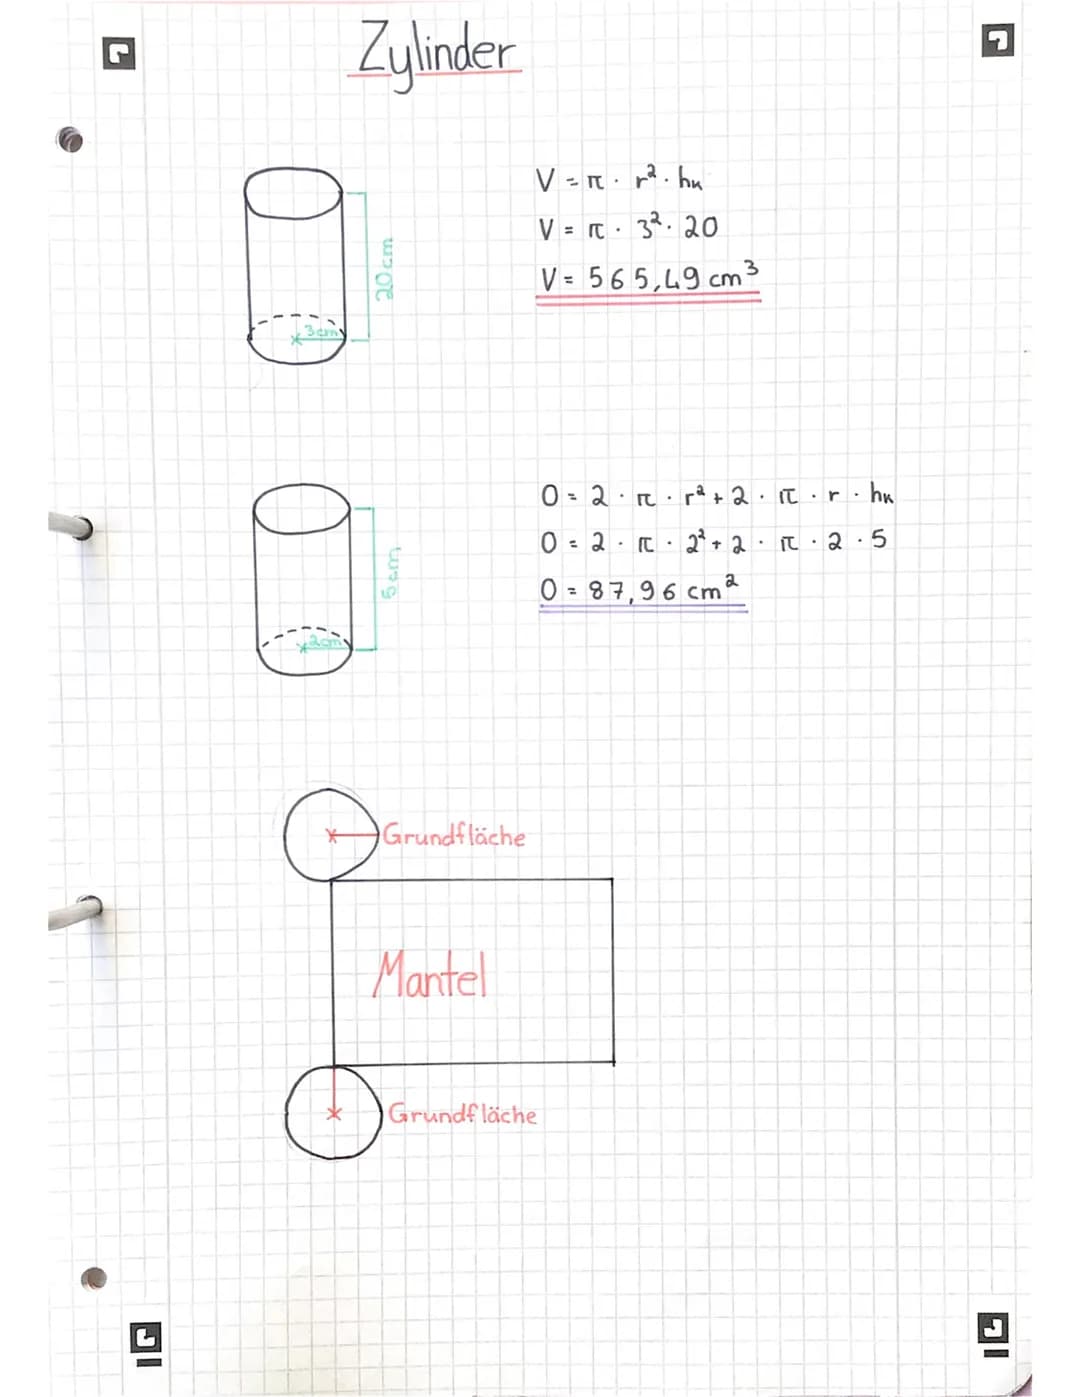 Zylinder
V = π · r² · hₖ
V = π · 3² · 20
V = 565,49 cm³
20cm
3cm
O = 2 · π · r² + 2 · π · r · hₖ
O = 2 · π · 2² + 2 · π · 2 · 5
O = 87,96 cm²
5cm
2cm
Grundfläche
Mantel
Grundfläche